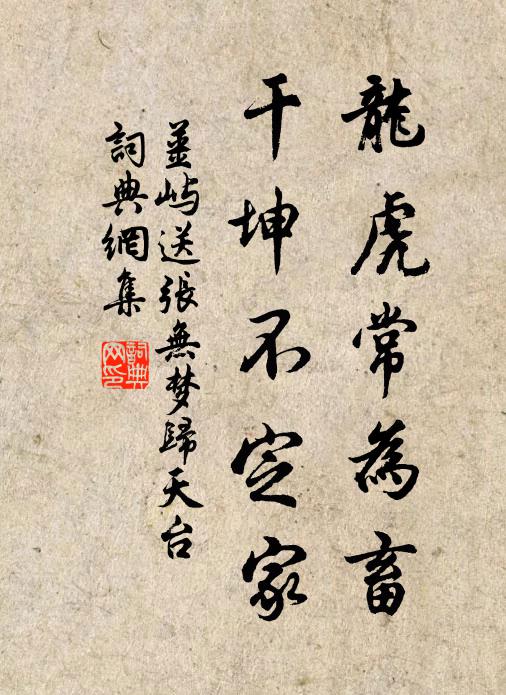 龍虎常為畜
干坤不定家
姜屿送張無梦歸天台
詞典網集
詞典
网印